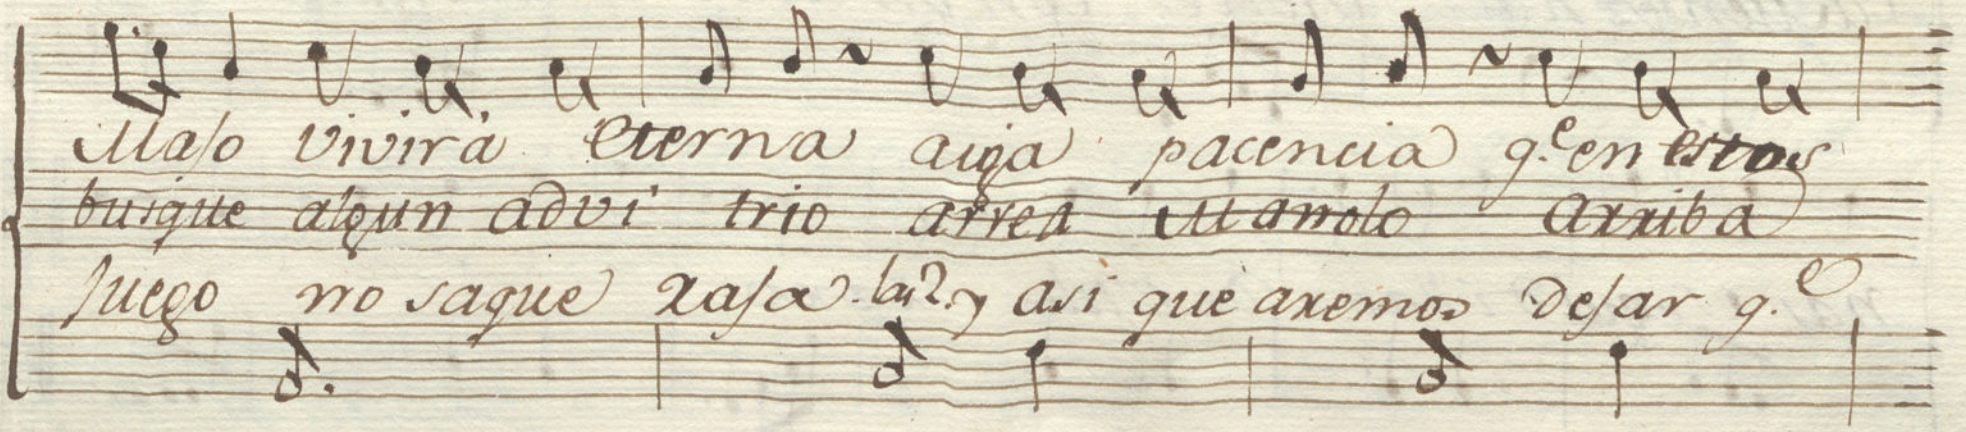 Maso vivirá eterna aiga pacencia q.e en estos
busque algun advi trio arrea Manolo arriba
fuego no saque rasa. las 2. y asi que aremos desar q.e